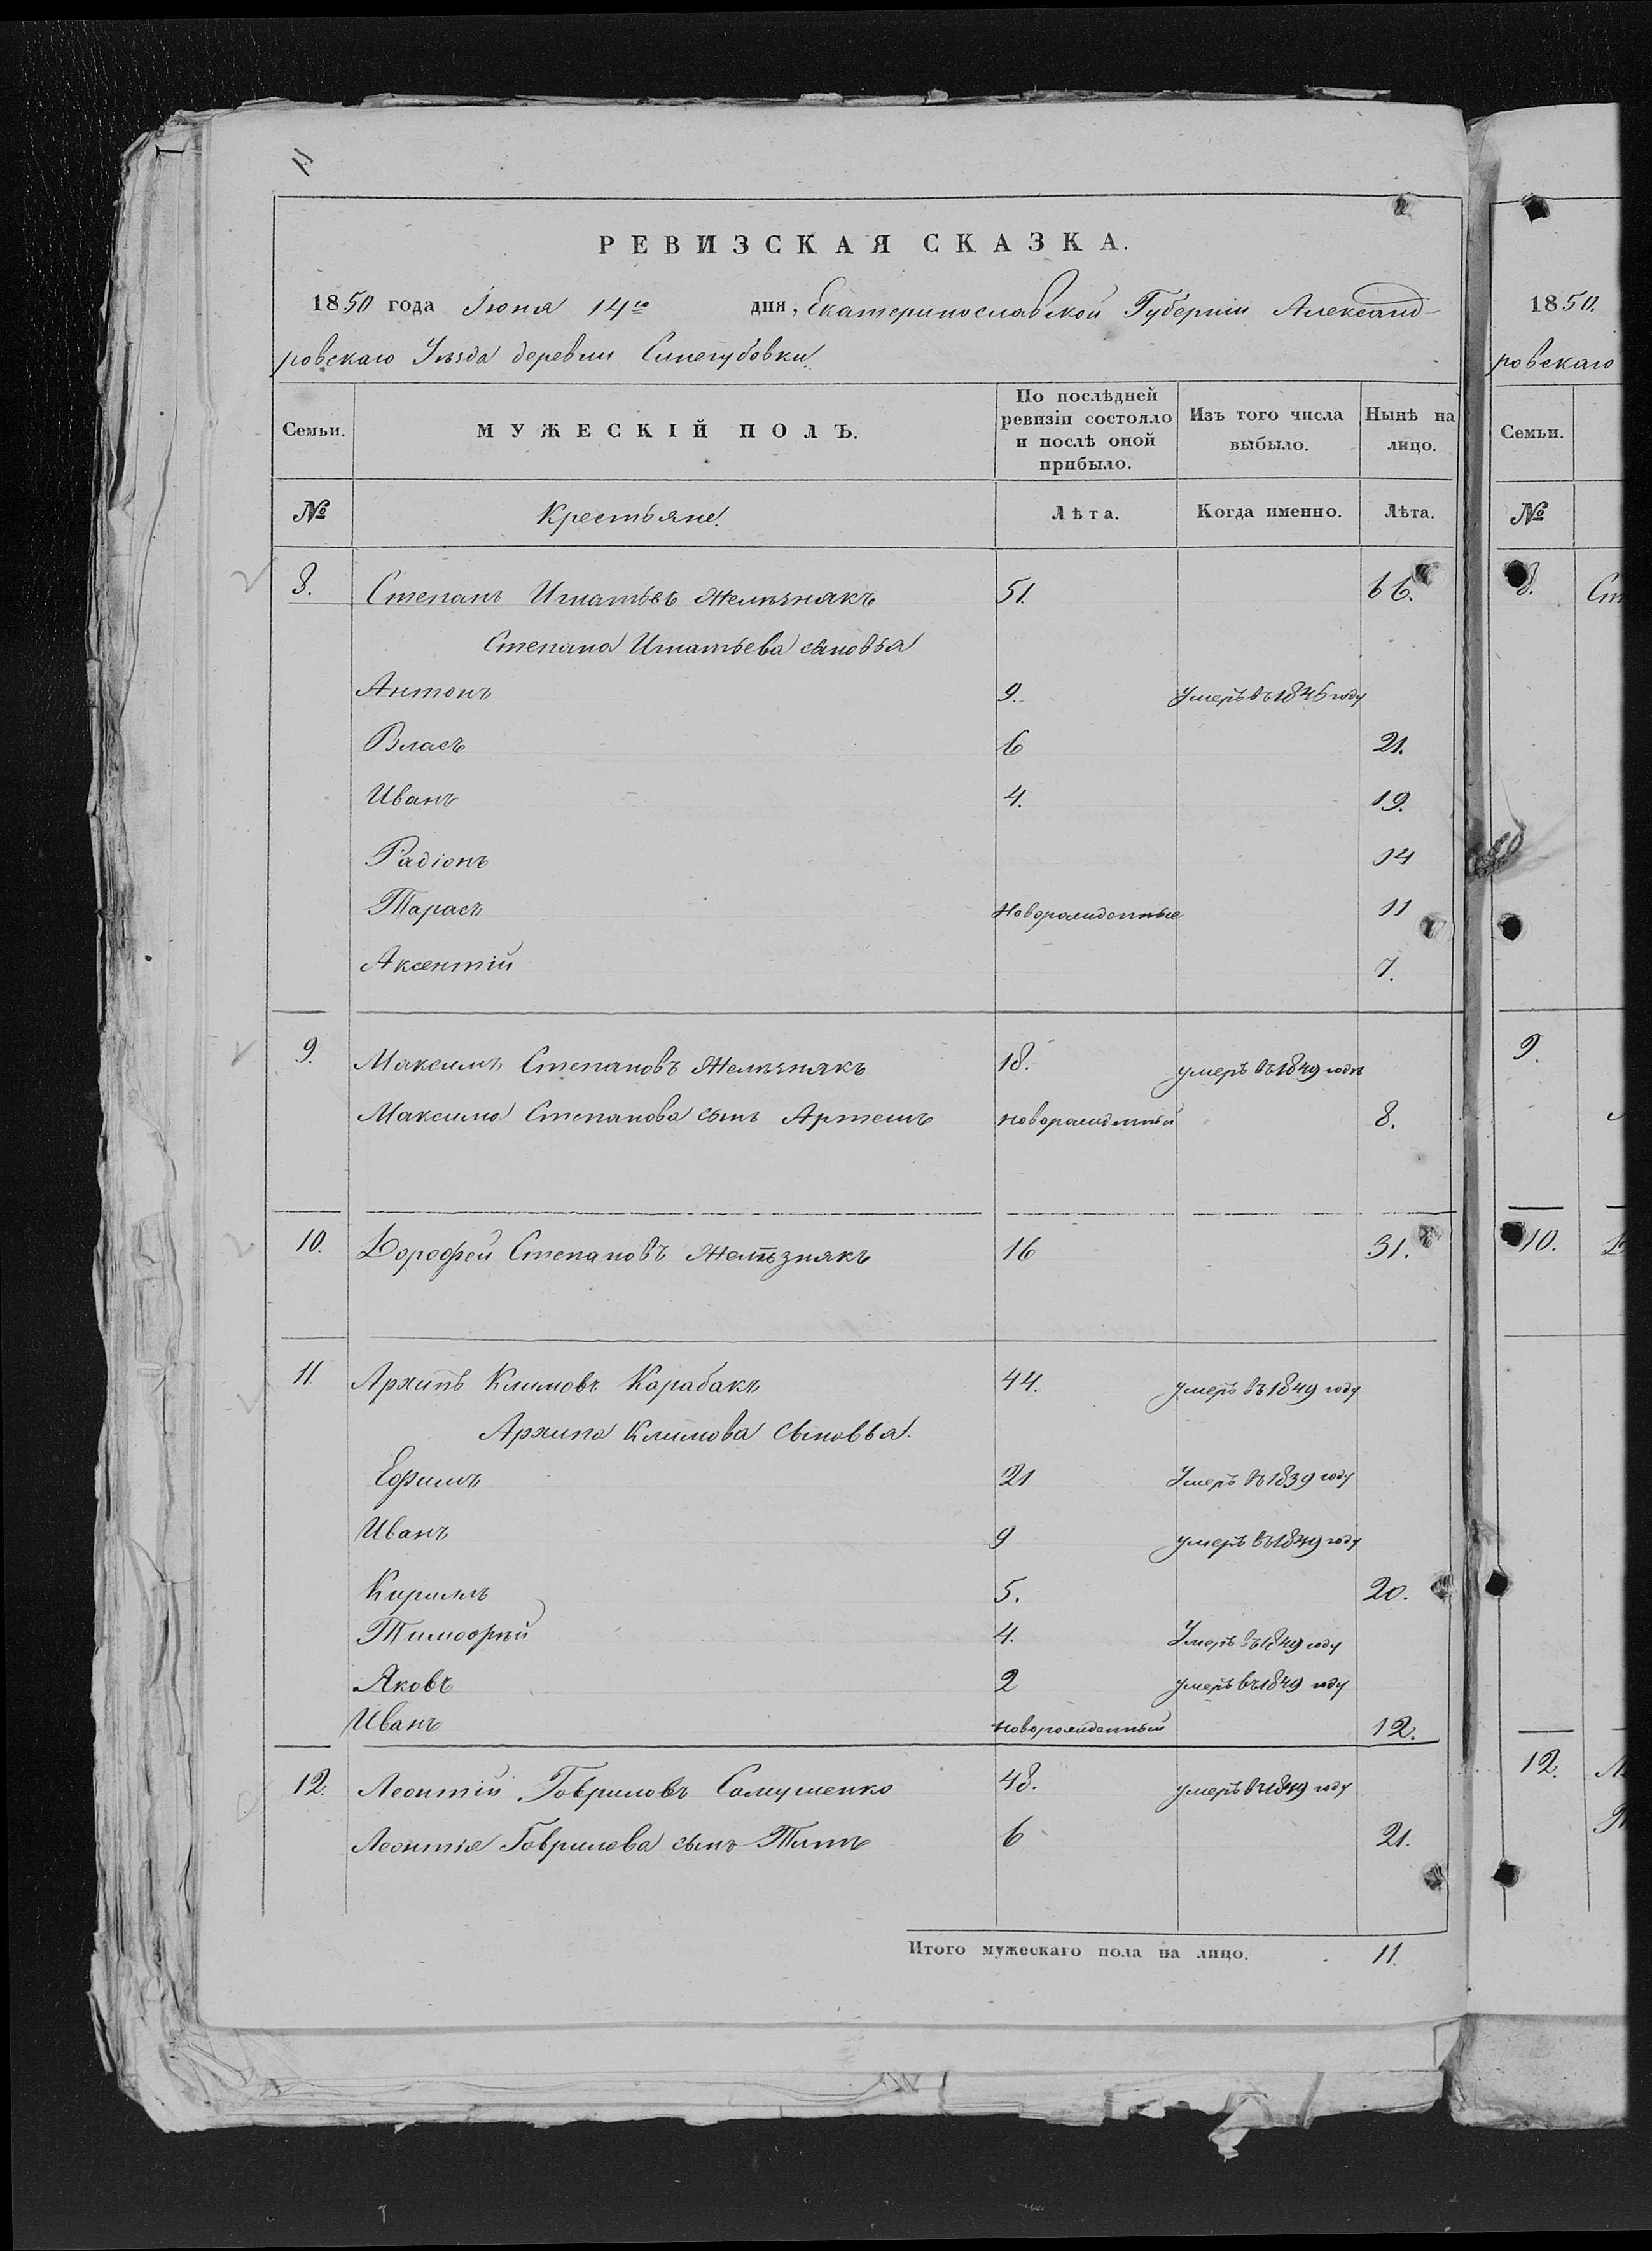 РЕВИЗСКАЯ СКАЗКА.
1850 года Июня 14го дня, Екатеринославской Губерніи Александ-
ровскаго Уѣзда деревни Синегубовки
Семьи. МУЖЕСКІЙ ПОЛЪ. По послѣдней ревизіи состояло и послѣ оной прибыло. Изъ того числа выбыло. Нынѣ на лицо.
№ Крестьяне. Лѣта. Когда именно. Лѣта.
8. Степанъ Игнатьевъ Желѣзнякъ 51. 66.
Степана Игнатьева сыновья
Антонъ 9. Умеръ въ 1845 году
Власъ 6 21.
Иванъ 4. 19.
Радіонъ 14
Тарасъ Новорожденные 11
Аксентій 7.
9. Максимъ Степановъ Желѣзнякъ 18. умеръ въ 1849 годѣ
Максима Степанова сынъ Артемъ новорожденный 8.
10. Дорофей Степановъ Желѣзнякъ 16 31.
11. Архипъ Климовъ Карабакъ 44. умеръ въ 1849 году
Архипа Климова Сыновья.
Ефимъ 21 Умеръ въ 1839 году
Иванъ 9 умеръ въ 1849 году
Кирилъ 5. 20.
Тимофѣй 4. Умеръ въ 1849 году
Яковъ 2 умеръ въ 1849 году
Иванъ новорожденный 12.
12. Леонтій Гавриловъ Самушенко 48. умеръ в 1849 году
Леонтія Гаврилова сынъ Титъ 6 21.
Итого мужескаго пола на лицо. 11.
1850.
ровскаго
Семьи.
№
8. Ст
9.
10.
12.